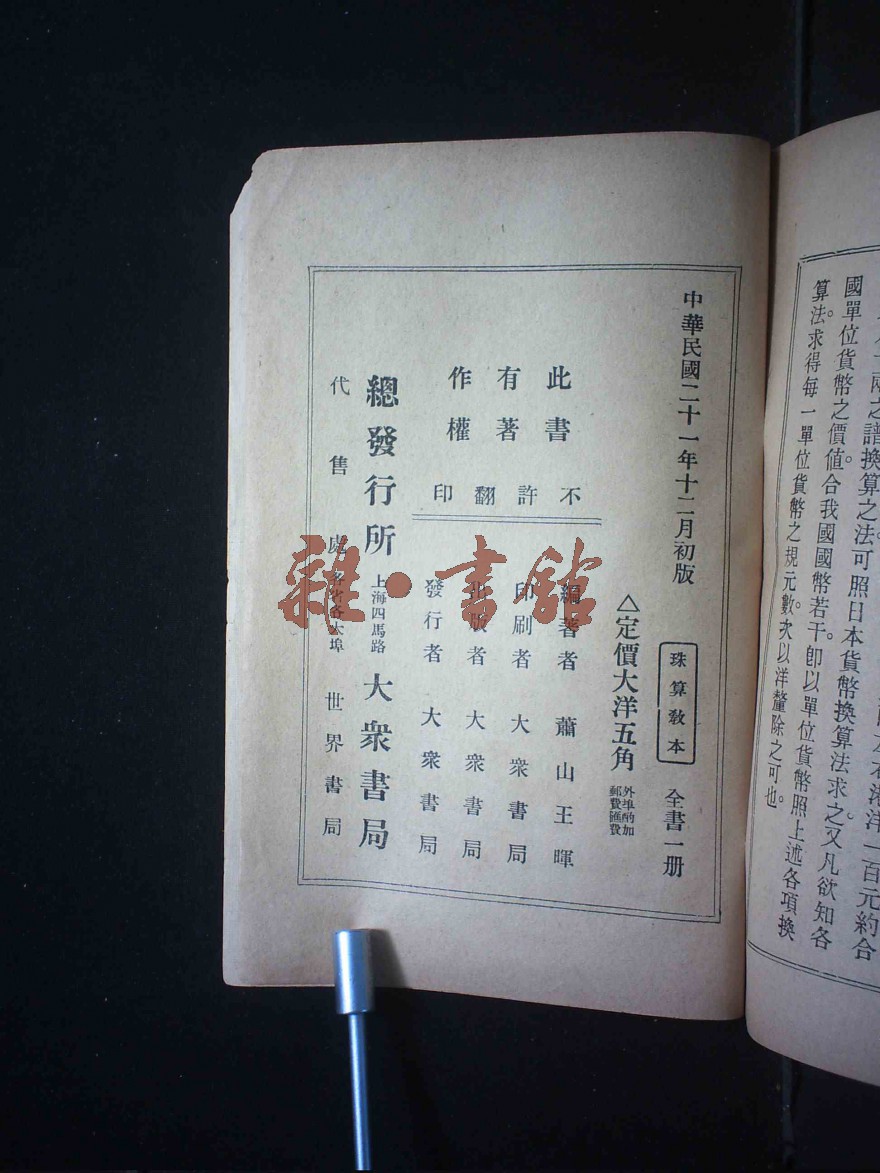 國單位貨幣之價值合我國國幣若干。卽以單位貨幣照上述各項換
算法。求得每一單位貨幣之規元數。次以洋釐除之可也。
中華民國二十一年十二月初版
珠算敎本
全書一册
△定價大洋五角
外埠酌加
郵費匯費
此書
有著
作權
不許翻印
編著者 蕭山王暉
印刷者 大衆書局
出版者 大衆書局
發行者 大衆書局
總發行所 上海四馬路 大衆書局
代售處 各省各大埠 世界書局
雜·書館